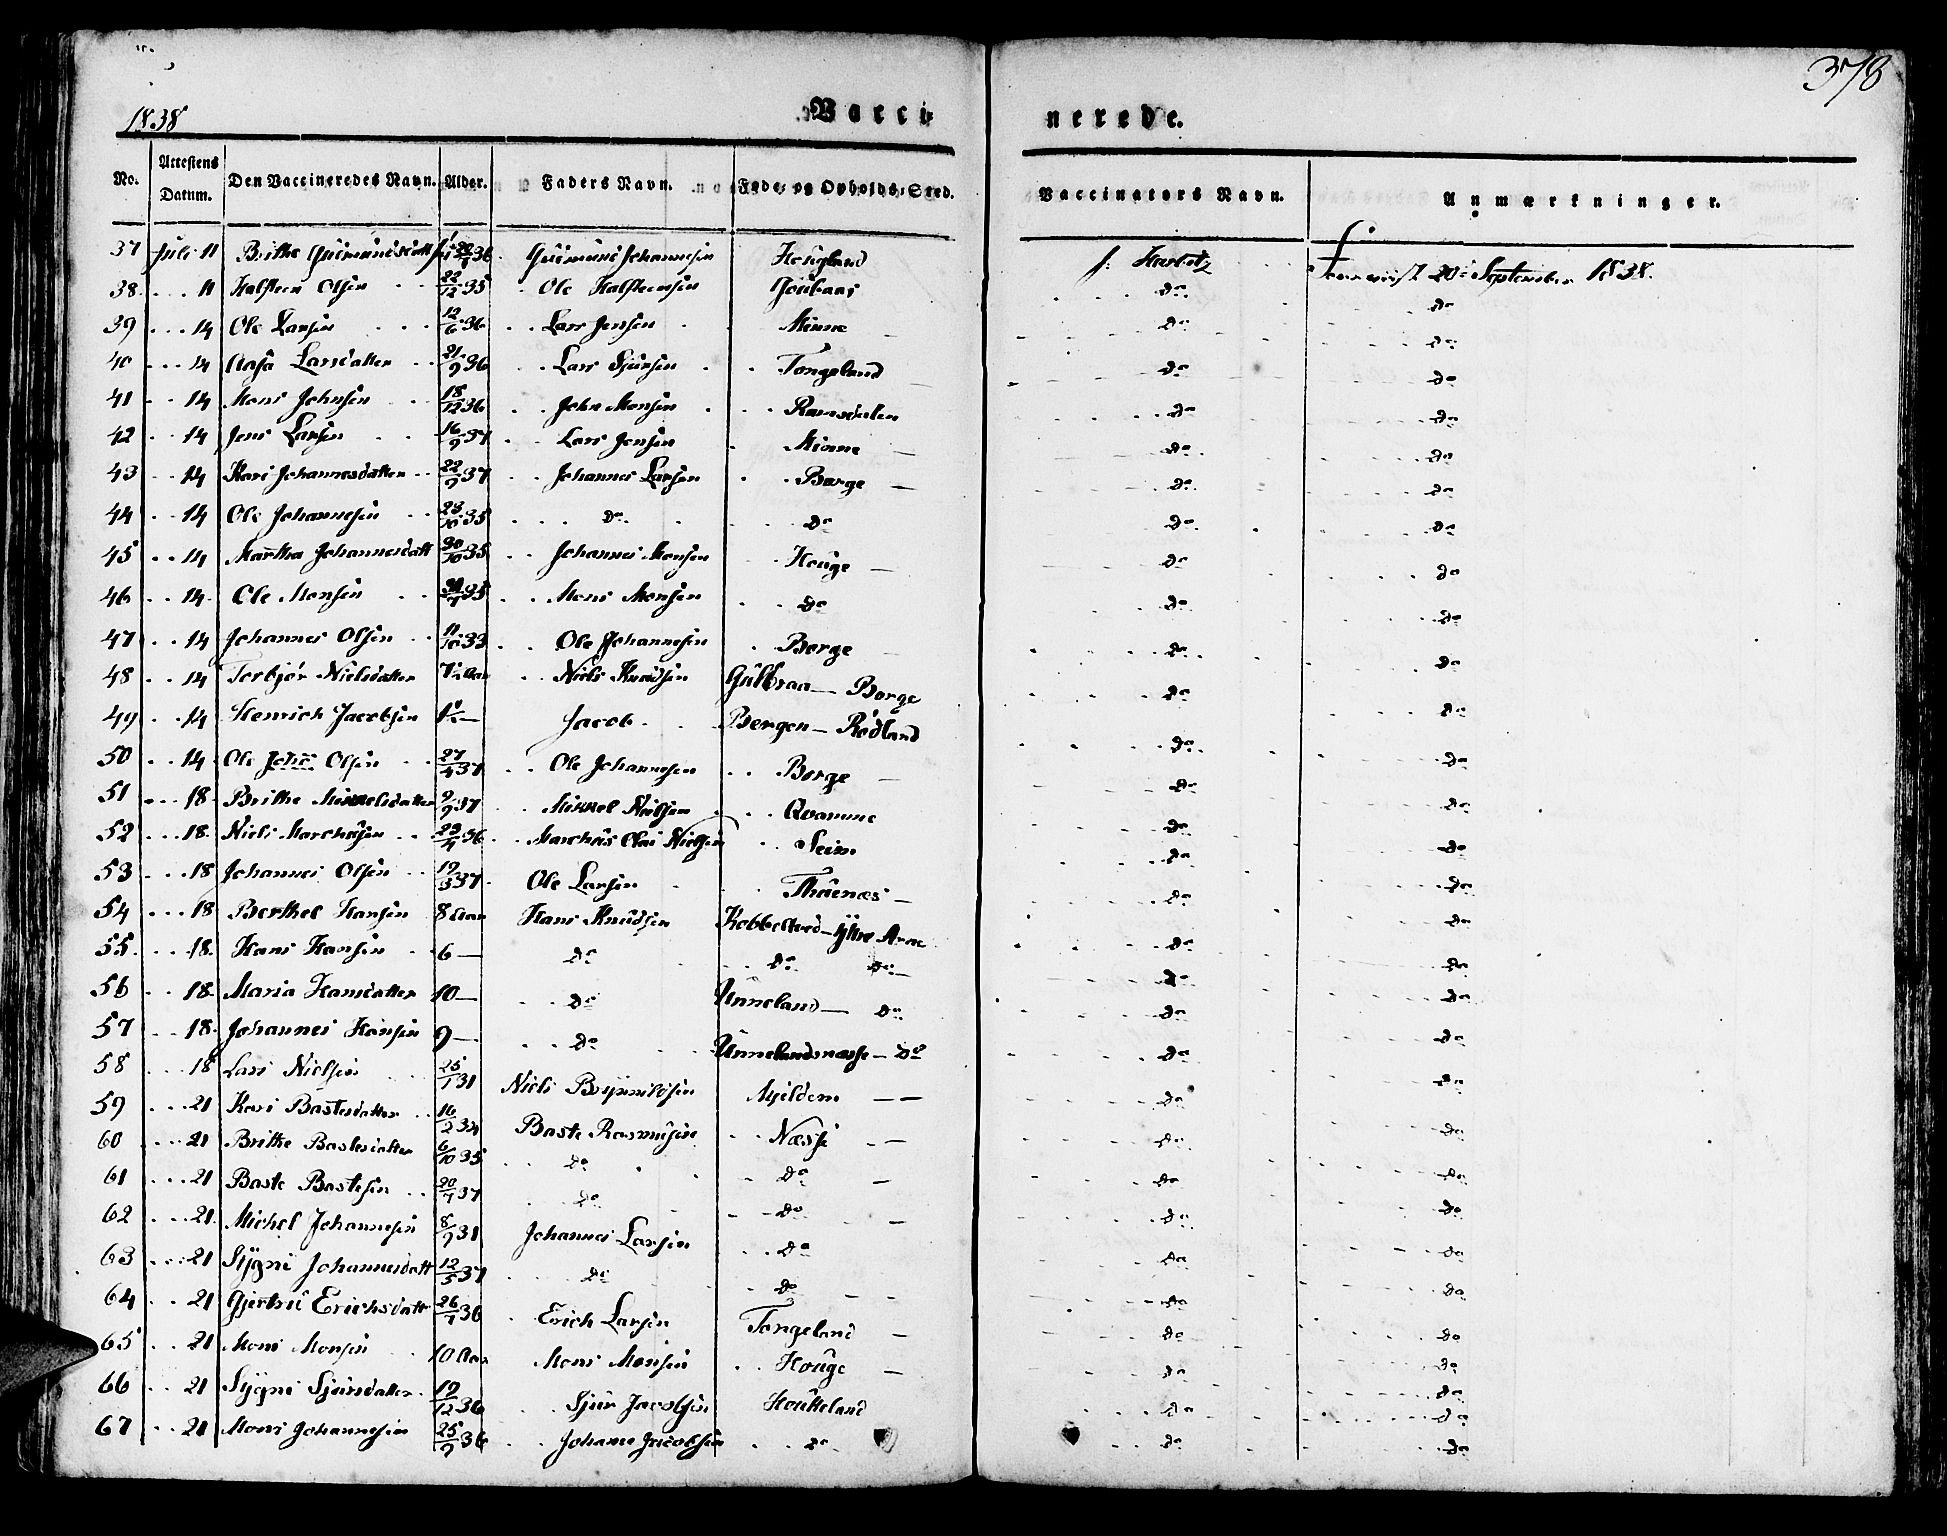 378
1838
Vacci- nerede.
No. Attestens Datum. Den Vaccineredes Navn. Alder. Faders Navn. Føde- og Opholds-Sted. Vaccinators Navn. Anmærkninger.
37 Juli 11 Brithe Gudmundsdatt 36 Gudmund Johannesen Hougland J. Fremvist 20de September 1838.
38 11 Halsteen Olsen 22/12 35 Ole Halsteensen do do
39 14 Ole Larsen 12/6 36 Lars Jensen Minne do do
40 14 Aasa Larsdatter 21/9 36 Lars Sjursen Tongeland do do
41 14 Mons Johnsen 18/12 36 John Monsen Ramsdalen do do
42 14 Jens Larsen 16/9 37 Lars Jensen Minne do do
43 14 Kari Johannesdatter 22/9 37 Johannes Larsen Borge do do
44 14 Ole Johannesen 23/10 35 do do do do
45 14 Martha Johannesdatt 30/10 35 Johannes Monsen Houge do do
46 14 Ole Monsen 35 Mons Monsen do do do
47 14 Johannes Olsen 11/10 33 Ole Johannesen Borge do do
48 14 Torbjør Nielsdatter Niels Knudsen Gulbraa — Borge do do
49 14 Henrich Jacobsen Jacob Bergen — Rødland do do
50 14 Ole Johs Olsen 27/4 37 Ole Johannesen Borge do do
51 18 Brithe Mikkelsdatter 9/9 37 Mikkel Nielsen Qvamme do do
52 18 Niels Marchusen 23/4 36 Marchus Olai Nielsen Seim do do
53 18 Johannes Olsen 19/3 37 Ole Larsen Thuenæs do do
54 18 Berthel Hansen 8 Aar Hans Knudsen Kobbeltved — Yttre Arne do do
55 18 Hans Hansen 6 — do do do do do
56 18 Maria Hansdatter 10 — do Unneland — do do do
57 18 Johannes Hansen 9 — do Unnelandsnæsse — do do do
58 18 Lars Nielsen 25/1 31 Niels Brynnildsen Mjeldem do do
59 21 Kari Bastesdatter 16/2 34 Baste Rasmusen Næsse do do
60 21 Brithe Bastesdatter 6/10 35 do do do do
61 21 Baste Bastesen 20/7 37 do do do do
62 21 Michel Johannesen 8/9 31 Johannes Larsen do do do
63 21 Sygni Johannesdatt 12/5 37 do do do do
64 21 Gjertrud Erichsdatt 26/7 36 Erich Larsen Tongeland do do
65 21 Mons Monsen 10 Aar Mons Monsen Houge do do
66 21 Sygni Sjursdatter 19/12 36 Sjur Jacobsen Houkeland do do
67 21 Mons Johannesen 25/9 36 Johannes Jacobsen do do do